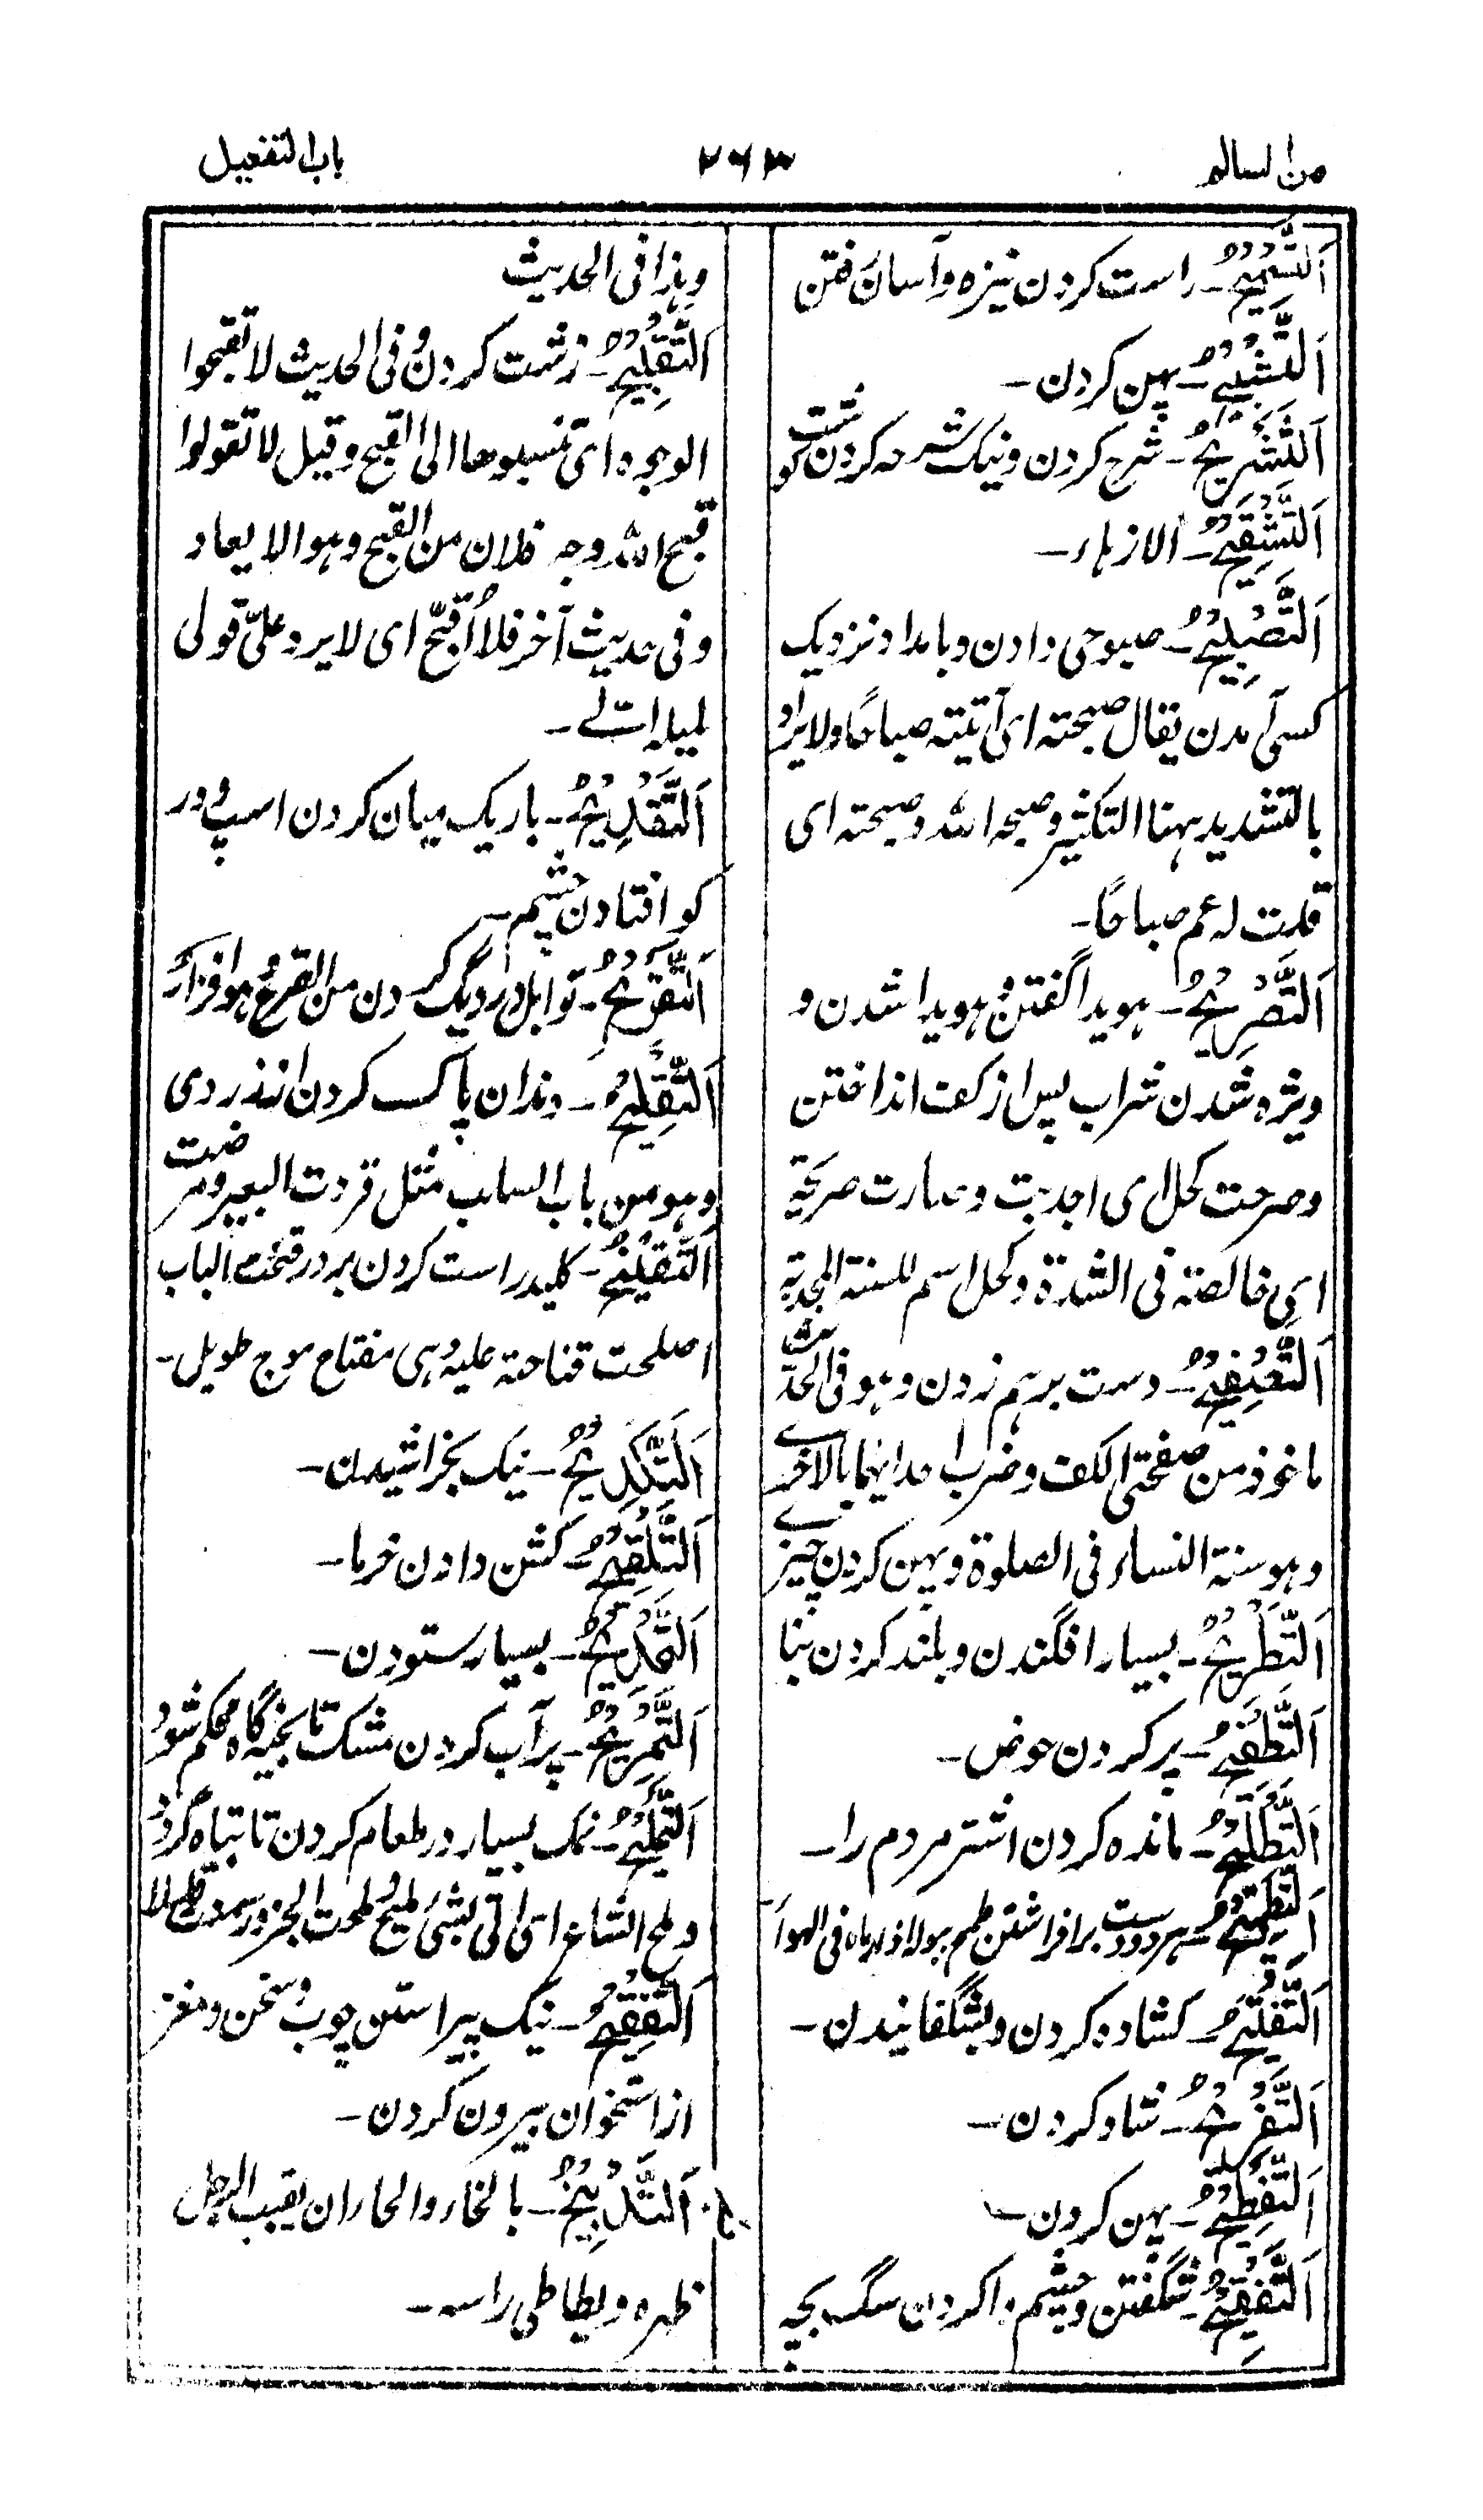 من السالم
۲۶۳
باب التفعيل
اَلتَّسْمِيْحُ۔ راست کردن نیزه و آسان رفتن
اَلتَّشْبِيْحُ۔ پهن کردن۔
اَلتَّشْرِيْحُ۔ شرح کردن و نیک شرحه کردن گوشت
اَلتَّشْقِيْحُ۔ الازهاء۔
اَلتَّصْبِيْحُ۔ صبوحی دادن و بامداد نزدیک
کسی آمدن یقال صبحته ای آتیته صباحًا ولا یراد
بالتشدید ههنا التکثیر وصبحه الله وصبحته ای
قلت له عم صباحًا۔
اَلتَّصْرِيْحُ۔ هویدا گفتن و هویدا شدن و
ویژه شدن شراب پس از کف انداختن
وصرحت کحل ای اجدبت وصارت صریحة
ای خالصته فی الشدة وکحل اسم للسنة المجدبة
اَلتَّصْفِيْحُ۔ دست برهم زدن وهو فی الحدیث
ماخوذ من صفحتی الکف وضرب احدایهما بالاخری
وهو سنة النساء فی الصلوة و پهن کردن چیزی
اَلتَّطْرِيْحُ۔ بسیار افگندن و بلند کردن بنا
اَلتَّطْفِيْحُ۔ پر کردن حوض۔
اَلتَّطْلِيْحُ۔ مانده کردن اشتر مردم را۔
اَلتَّطْمِيْحُ۔ هر دو دست برافراشتن طمح ببوله اذا رماه فی الهوآ
اَلتَّفْتِيْحُ۔ کشاده کردن و بشگفانیدن۔
اَلتَّفْرِيْحُ۔ شاد کردن۔
اَلتَّفْطِيْحُ۔ پهن کردن۔
اَلتَّفْقِيْحُ۔ شگفتن و چشم وا کردن سگ بچه
وهذا فی الحدیث
اَلتَّقْبِيْحُ۔ زشت کردن و فی الحدیث لا تقبحوا
الوجوه ای تنسبوها الی القبح وقیل لا تقولوا
قبح الله وجه فلان من القبح وهو الابعاد
وفی حدیث آخر فلا اُقَبَّح ای لا یرد علیّ قولی
لمیله الی۔
اَلتَّقْدِيْحُ۔ باریک میان کردن اسپ و در
کو افتادن چشم۔
اَلتَّقْزِيْحُ۔ توابل در دیگ کردن من القزح وهو افزار
اَلتَّقْلِيْحُ۔ دندان پاک کردن از زردی
وهو من باب السلب مثل قردت البعیر ومرضت
اَلتَّقْنِيْحُ۔ کلید راست کردن بر در قنحت الباب
اصلحت قناحة علیه وهی مفتاح معوج طویل۔
اَلتَّكْدِيْحُ۔ نیک بخراشیدن۔
اَلتَّلْقِيْحُ۔ کشن دادن خرما۔
اَلتَّمْدِيْحُ۔ بسیار ستودن۔
اَلتَّمْرِيْحُ۔ پرآب کردن مشک تا بخیه گاه محکم شود
اَلتَّمْلِيْحُ۔ نمک بسیار در طعام کردن تا تباه گردد
وملح الشاعر ای اتی بشئ ملیح وملحت الجزور سمنت قلیلا
اَلتَّنْقِيْحُ۔ نیک پیراستن چوب و سخن و مغز
از استخوان بیرون کردن۔
خ۔ اَلتَّدْبِيْخُ۔ بالخاء والحاء ان یقبب الرجل
ظهره ویطاطئ راسه۔